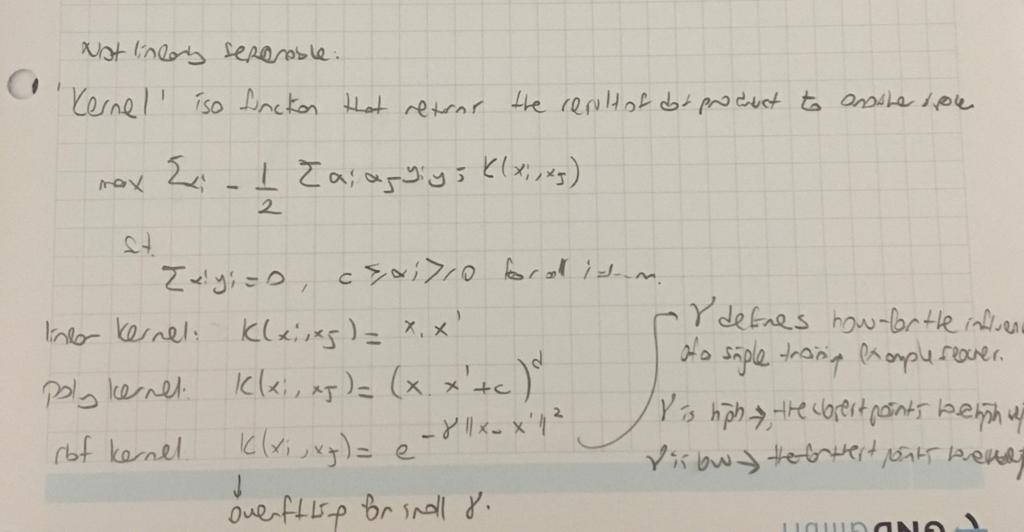 Not linearly seperable.
'Kernel' is a function that returns the result of dot product to another space
max Σαi - 1/2 Σ αi αj yi yj K(xi, xj)
st.
Σ αi yi = 0, c ≥ αi ≥ 0 for all i=1...n.
linear kernel: K(xi, xj) = x. x'
poly kernel: K(xi, xj) = (x. x' + c)^d
rbf kernel K(xi, xj) = e^-γ||x - x'||²
↓
for small γ.
γ defines how far the influen
of a single training example reaches.
γ is high → the closest points weigh
γ is low → the furthest points